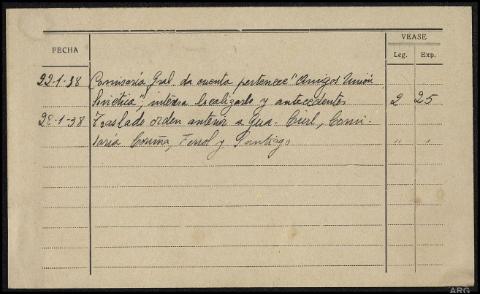 FECHA
VEASE
Leg. Exp.
22-1-38 Comisaría Gral. da cuenta pertenece "Amigos Unión
Sovietica", interesa localizarlo y antecedentes 2 25
28-1-38 Traslado orden anterior a Gua. Civil, Comi-
saría Coruña, Ferrol y Santiago " "
ARG